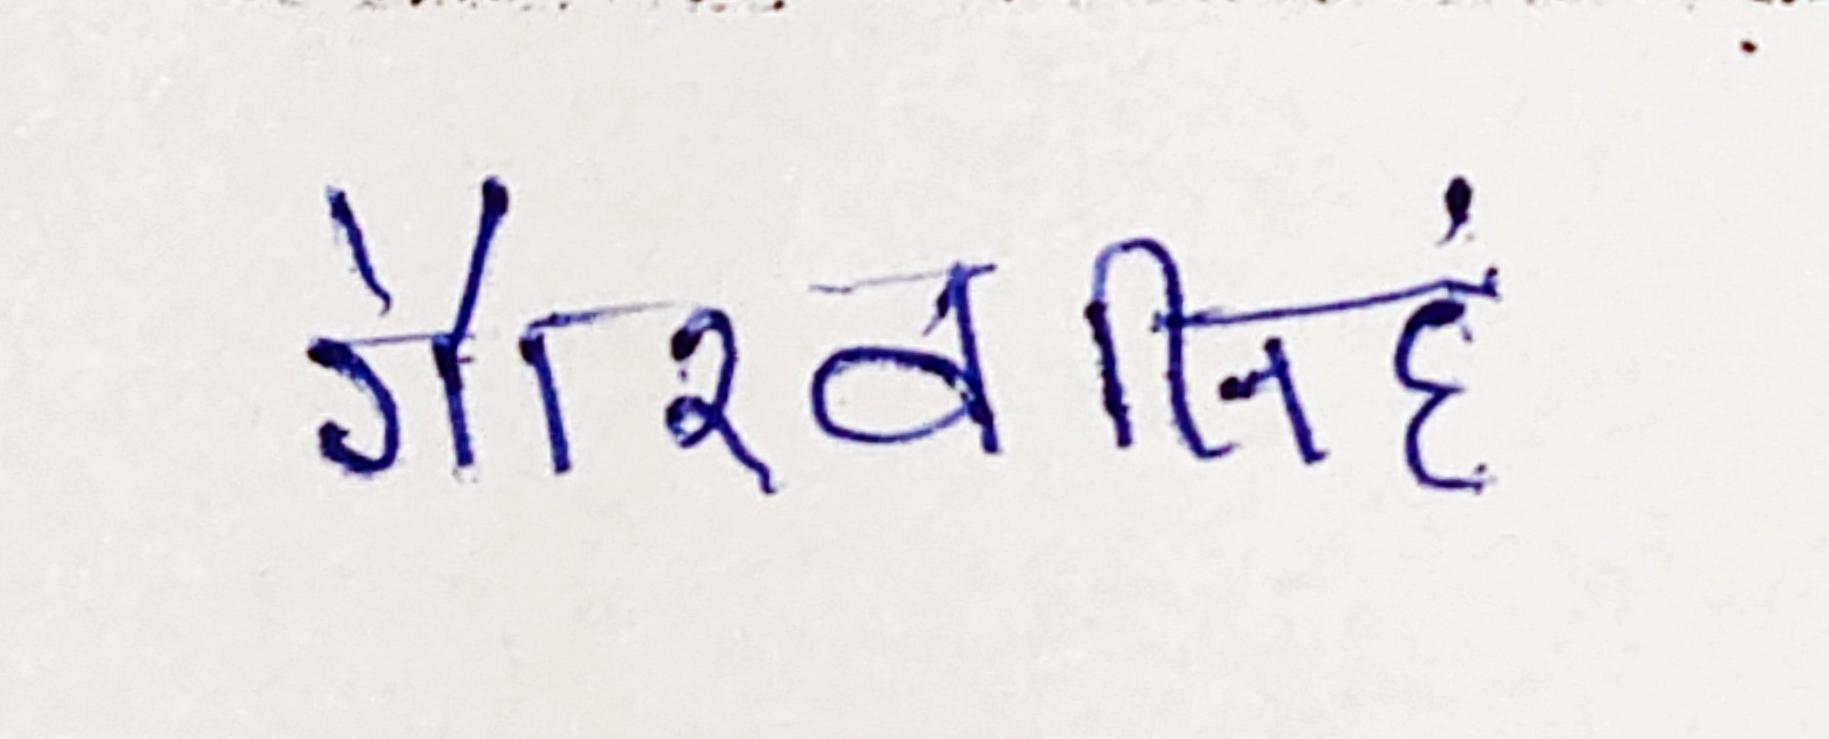 गौरव सिहं